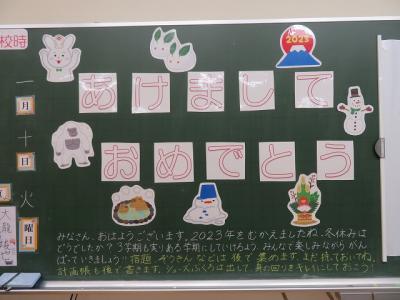 校時
2023
あけまして
おめでとう
一月十日火曜日
みなさん、おはようございます。2023年をむかえましたね。冬休みは
どうでしたか？3学期も実りある学期にしていけるよう、みんなで楽しみながらがん
ばっていきましょう!!宿題、ぞうきんなどは後で集めます。まだ持っておいてね。
計画帳も後で書きます。シューズぶくろは出して身の回りをキレイにしておこう！